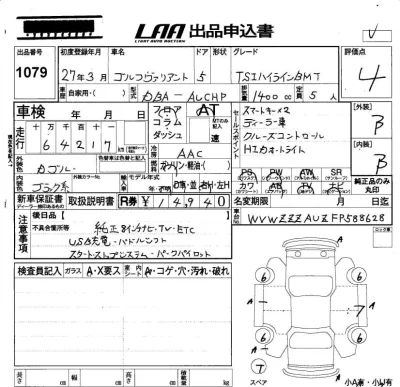 LAA 出品申込書
LIGHT AUTO AUCTION
出品番号
1079
初度登録年月
27年3月
車名
ゴルフヴァリアント
ドア
5
形状
グレード
TSIハイラインBMT
評価点
4
車歴
自家用・( )
型式
DBA-AUCHP
1400 cc
定員
5人
車検
年 月 日
走行
十万 万 千 百 十 一
6 4 2 1 7
フロア
コラム
ダッシュ
AT
速
セールスポイント
スマートキー×2
ディーラー車
クルーズコントロール
HIDオートライト
【外装】
B
【内装】
B
外装色
内装色
ブラック系
冷房
AAC
燃料
ガソリン・軽油・( )
PS PW AW SR
カワ AB TV ナビ
純正品のみ
丸印
新車保証書
取扱説明書
R券
¥14940
車台No.
WVWZZZAUZFP588628
名変期限
月 日迄
注意事項
後日品( )
不具合箇所等
純正8インチナビ・TV・ETC
USB充電・パドルシフト
スタートストップシステム・パークパイロット
検査員記入
ガラス
A・X要ス
シート
A・コゲ・穴・汚れ・破れ
6 6
A
A
7
6 6
A
T
スペア
小A有・小U有
長さ cm
幅 cm
高さ cm
積載量 kg